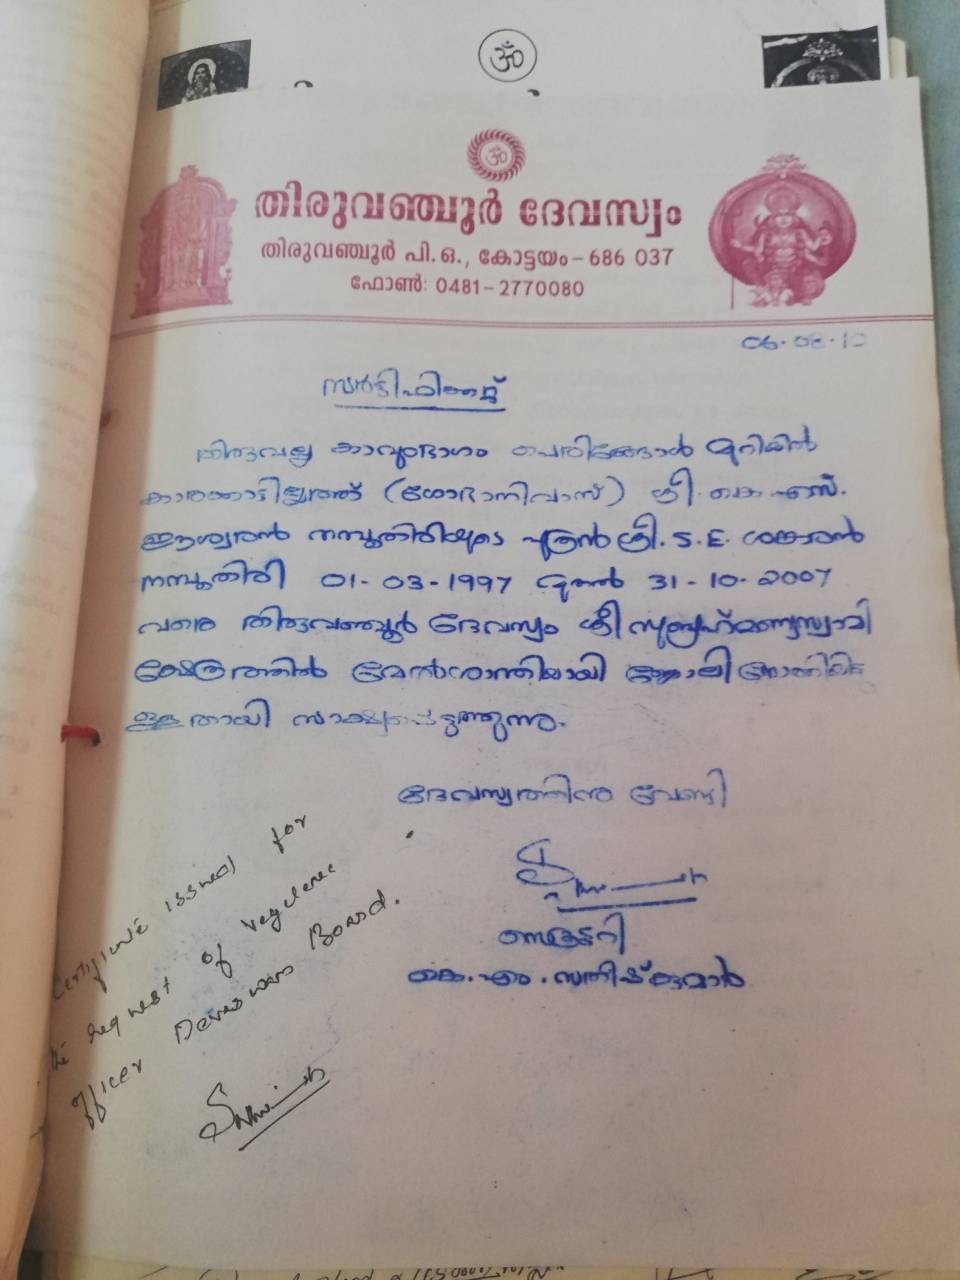 ॐ
ॐ
തിരുവഞ്ചൂർ ദേവസ്വം
തിരുവഞ്ചൂർ പി. ഒ., കോട്ടയം - 686 037
ഫോൺ: 0481 - 2770080
സർട്ടിഫിക്കറ്റ്
തിരുവല്ല കാവുംഭാഗം പെരിങ്ങോൾ മുറിയിൽ
(ശോഭാനിവാസ്) ശ്രീ. കെ. എസ്.
ഈശ്വരൻ നമ്പൂതിരിയുടെ മകൻ ശ്രീ. S. E. ശങ്കരൻ
നമ്പൂതിരി 01-03-1997 മുതൽ 31-10-2007
വരെ തിരുവഞ്ചൂർ ദേവസ്വം ശ്രീ സുബ്രഹ്മണ്യസ്വാമി
ക്ഷേത്രത്തിൽ മേൽശാന്തിയായി ജോലി
ള്ളതായി സാക്ഷ്യപ്പെടുത്തുന്നു.
ദേവസ്വത്തിനു വേണ്ടി
സെക്രട്ടറി
കെ. എം. സതീഷ്കുമാർ
Certificate issued for
the request of
officer Devaswom Board.